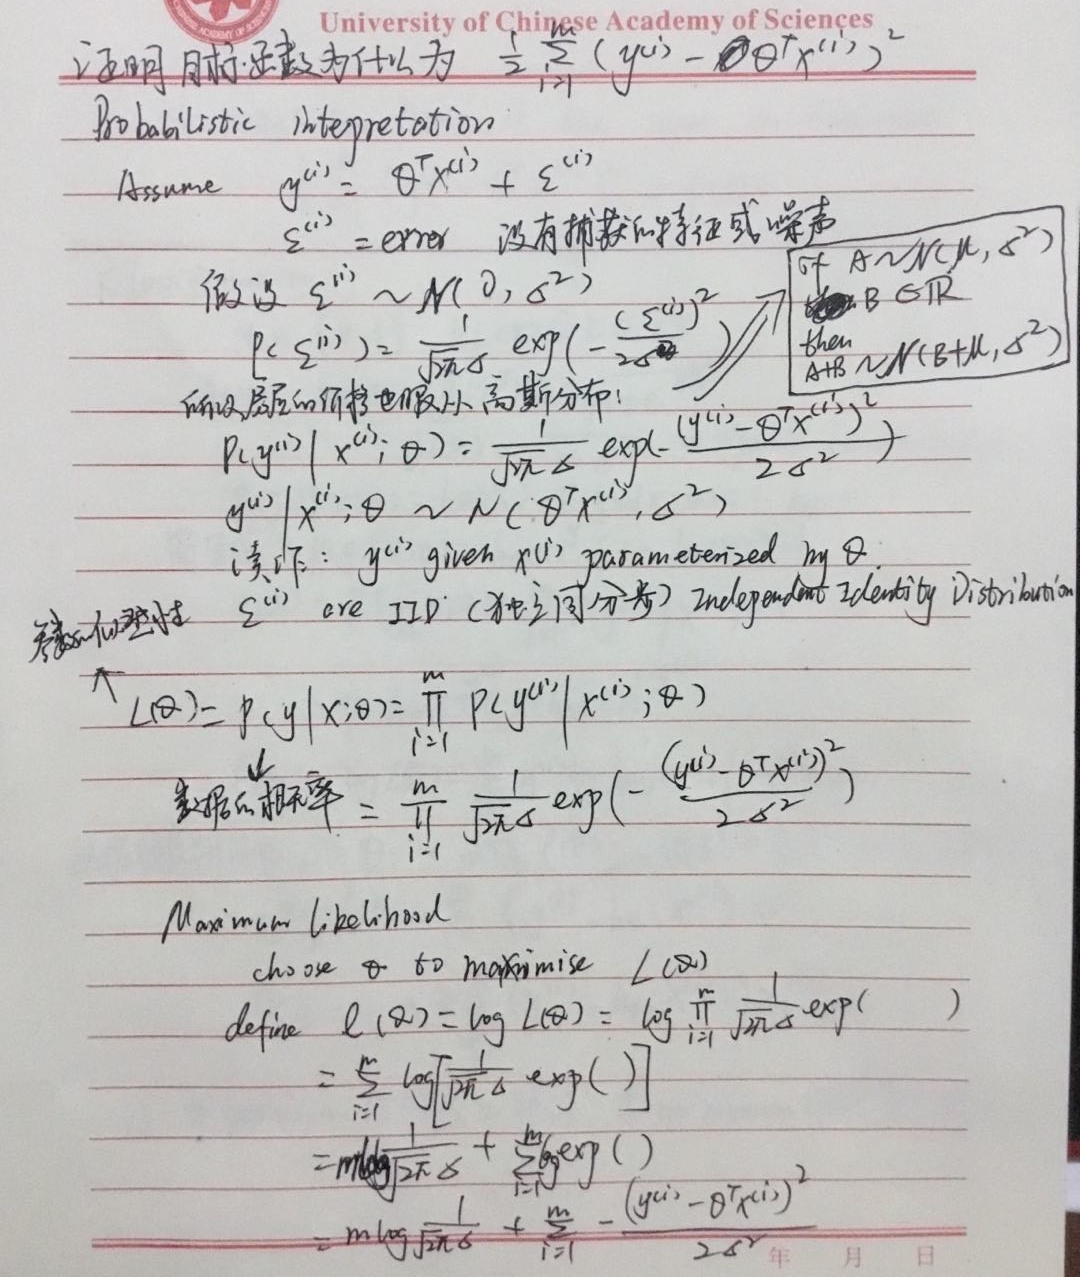 University of Chinese Academy of Sciences
证明目标函数为什么为 1/2 Σ_{i=1}^{m} (y^(i) - θ^T x^(i))^2
Probabilistic intepretation
Assume y^(i) = θ^T x^(i) + ε^(i)
ε^(i) = error 没有捕获的特征或噪声
假设 ε^(i) ~ N(0, σ^2)
If A ~ N(μ, σ^2)
B ∈ ℝ
then
A+B ~ N(B+μ, σ^2)
P(ε^(i)) = 1/(√2π σ) exp(-(ε^(i))^2 / 2σ)
所以房屋的价格也服从高斯分布:
P(y^(i) | x^(i); θ) = 1/(√2π σ) exp(-(y^(i) - θ^T x^(i))^2 / 2σ^2)
y^(i) | x^(i); θ ~ N(θ^T x^(i), σ^2)
读作: y^(i) given x^(i) parameterized by θ.
ε^(i) are IID (独立同分布) Independent Identity Distribution
参数的似然性
L(θ) = P(y | x; θ) = Π_{i=1}^{m} P(y^(i) | x^(i); θ)
数据的概率 = Π_{i=1}^{m} 1/(√2π σ) exp(-(y^(i) - θ^T x^(i))^2 / 2σ^2)
Maximum likelihood
choose θ to maximise L(θ)
define l(θ) = log L(θ) = log Π_{i=1}^{m} 1/(√2π σ) exp( )
= Σ_{i=1}^{m} log[1/(√2π σ) exp( )]
= m log 1/(√2π σ) + Σ_{i=1}^{m} log exp( )
= m log 1/(√2π σ) + Σ_{i=1}^{m} -(y^(i) - θ^T x^(i))^2 / 2σ^2
年 月 日